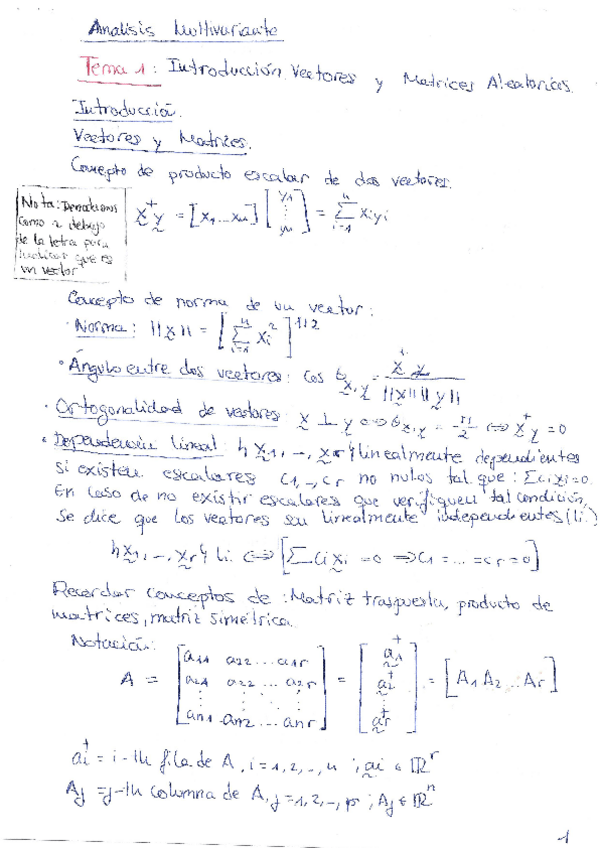 Analisis Multivariante
Tema 1: Introducción Vectores y Matrices Aleatorias.
Introducción.
Vectores y Matrices.
Concepto de producto escalar de dos vectores.
Nota: Denotamos
como ~ debajo
de la letra para
indicar que es
un vector
x^t y = [x1 ... xn] [y1 ⋮ yn] = Σ_{i=1}^{n} xi yi
Concepto de norma de un vector:
· Norma: ||x|| = [Σ_{i=1}^{n} xi^2]^{1/2}
· Ángulo entre dos vectores: cos θ_{x,y} = x^t y / ||x|| ||y||
· Ortogonalidad de vectores x ⊥ y ⇔ θ_{x,y} = π/2 ⇔ x^t y = 0
· Dependencia lineal: {x1, –, xr} linealmente dependientes
si existen escalares c1, –, cr no nulos tal que: Σ ci xi = 0.
En caso de no existir escalares que verifiquen tal condición,
se dice que los vectores son linealmente independientes (li.)
{x1, –, xr} li. ⇔ [Σ ci xi = 0 ⇒ c1 = ... = cr = 0]
Recordar conceptos de: Matriz traspuesta, producto de
matrices, matriz simétrica.
Notación:
A = [a11 a22 ... a1r; a21 a22 ... a2r; ⋮ ⋮ ⋱ ⋮; an1 an2 ... anr] = [a1^t; a2^t; ⋮; ar^t] = [A1 A2 ... Ar]
ai^t = i-th fila de A, i = 1, 2, –, n ; ai ∈ ℝ^r
Aj = j-th columna de A, j = 1, 2, –, p ; Aj ∈ ℝ^n
1